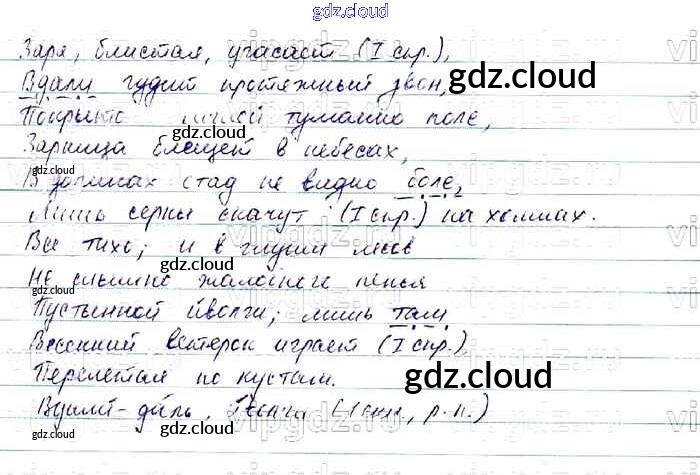 gdz.cloud
Заря, блистая, угасает (I спр.),
Вдали гудит протяжный звон,
Покрыто мглой туманно поле,
Зарница блещет в небесах,
В долинах стад не видно боле,
Лишь серны скачут (I спр.) на холмах.
Все тихо; и в глуши лесов
Не слышно жалобного пенья
Пустынной иволги; лишь там
Весенний ветерок играет (I спр.)
Перелетая по кустам.
Вдали - даль, (1 скл., р.п.)
gdz.cloud
gdz.cloud
gdz.cloud
gdz.cloud
gdz.cloud
gdz.cloud
gdz.cloud
gdz.cloud
gdz.cloud
gdz.cloud